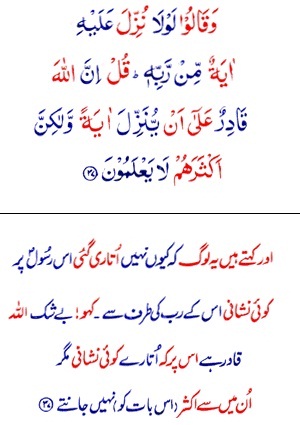 وَقَالُوۡا لَوۡلَا نُزِّلَ عَلَيۡهِ
اٰيَةٌ مِّنۡ رَّبِّهٖ ؕ قُلۡ اِنَّ اللّٰهَ
قَادِرٌ عَلٰٓى اَنۡ يُّنَزِّلَ اٰيَةً وَّلٰـكِنَّ
اَكۡثَرَهُمۡ لَا يَعۡلَمُوۡنَ ﴿۳۷﴾
اور کہتے ہیں یہ لوگ کہ کیوں نہیں اُتاری گئی اس رسولؐ پر
کوئی نشانی اس کے رب کی طرف سے ۔ کہو! بے شک اللہ
قادر ہے اس پر کہ اُتارے کوئی نشانی مگر
اُن میں سے اکثر (اس بات کو) نہیں جانتے ﴿۳۷﴾